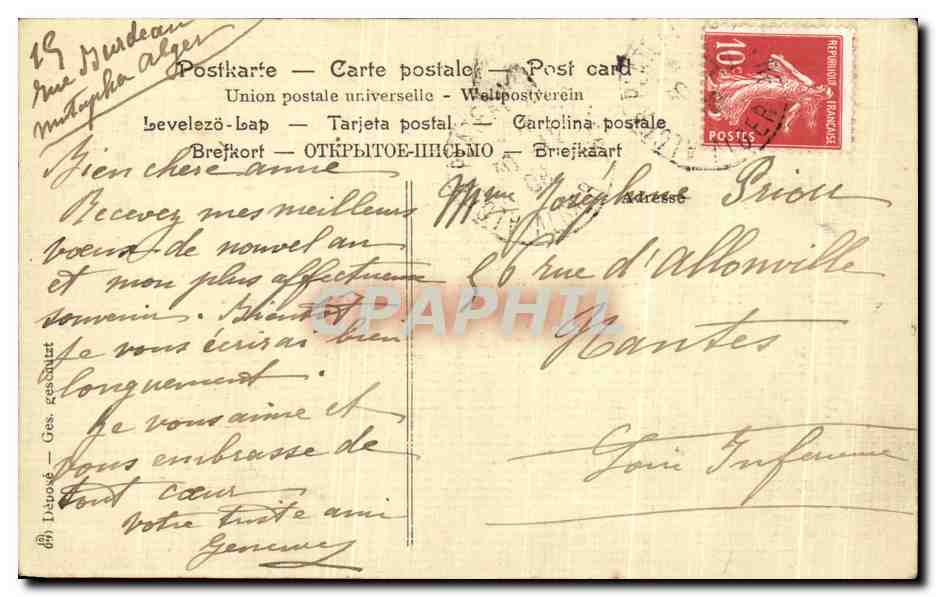 19
rue Burdeau
Mustapha Alger
Postkarte — Carte postale — Post card
Union postale universelle - Weltpostverein
Levelezö-Lap — Tarjeta postal — Cartolina postale
Brefkort — ОТКРЫТОЕ-ПИСЬМО — Briefkaart
Bien chère amie
Recevez mes meilleurs
voeux de nouvel an
et mon plus affectueux
souvenir. Bientôt
je vous écrirai bien
longuement.
Je vous aime et
vous embrasse de
tout coeur
Votre triste amie
Adresse
Mme Josephine Priou
56 rue d'Allonville
Nantes
Loire Inférieure
Déposé — Ges. geschützt
REPUBLIQUE FRANÇAISE
10c
POSTES
CPAPHIL